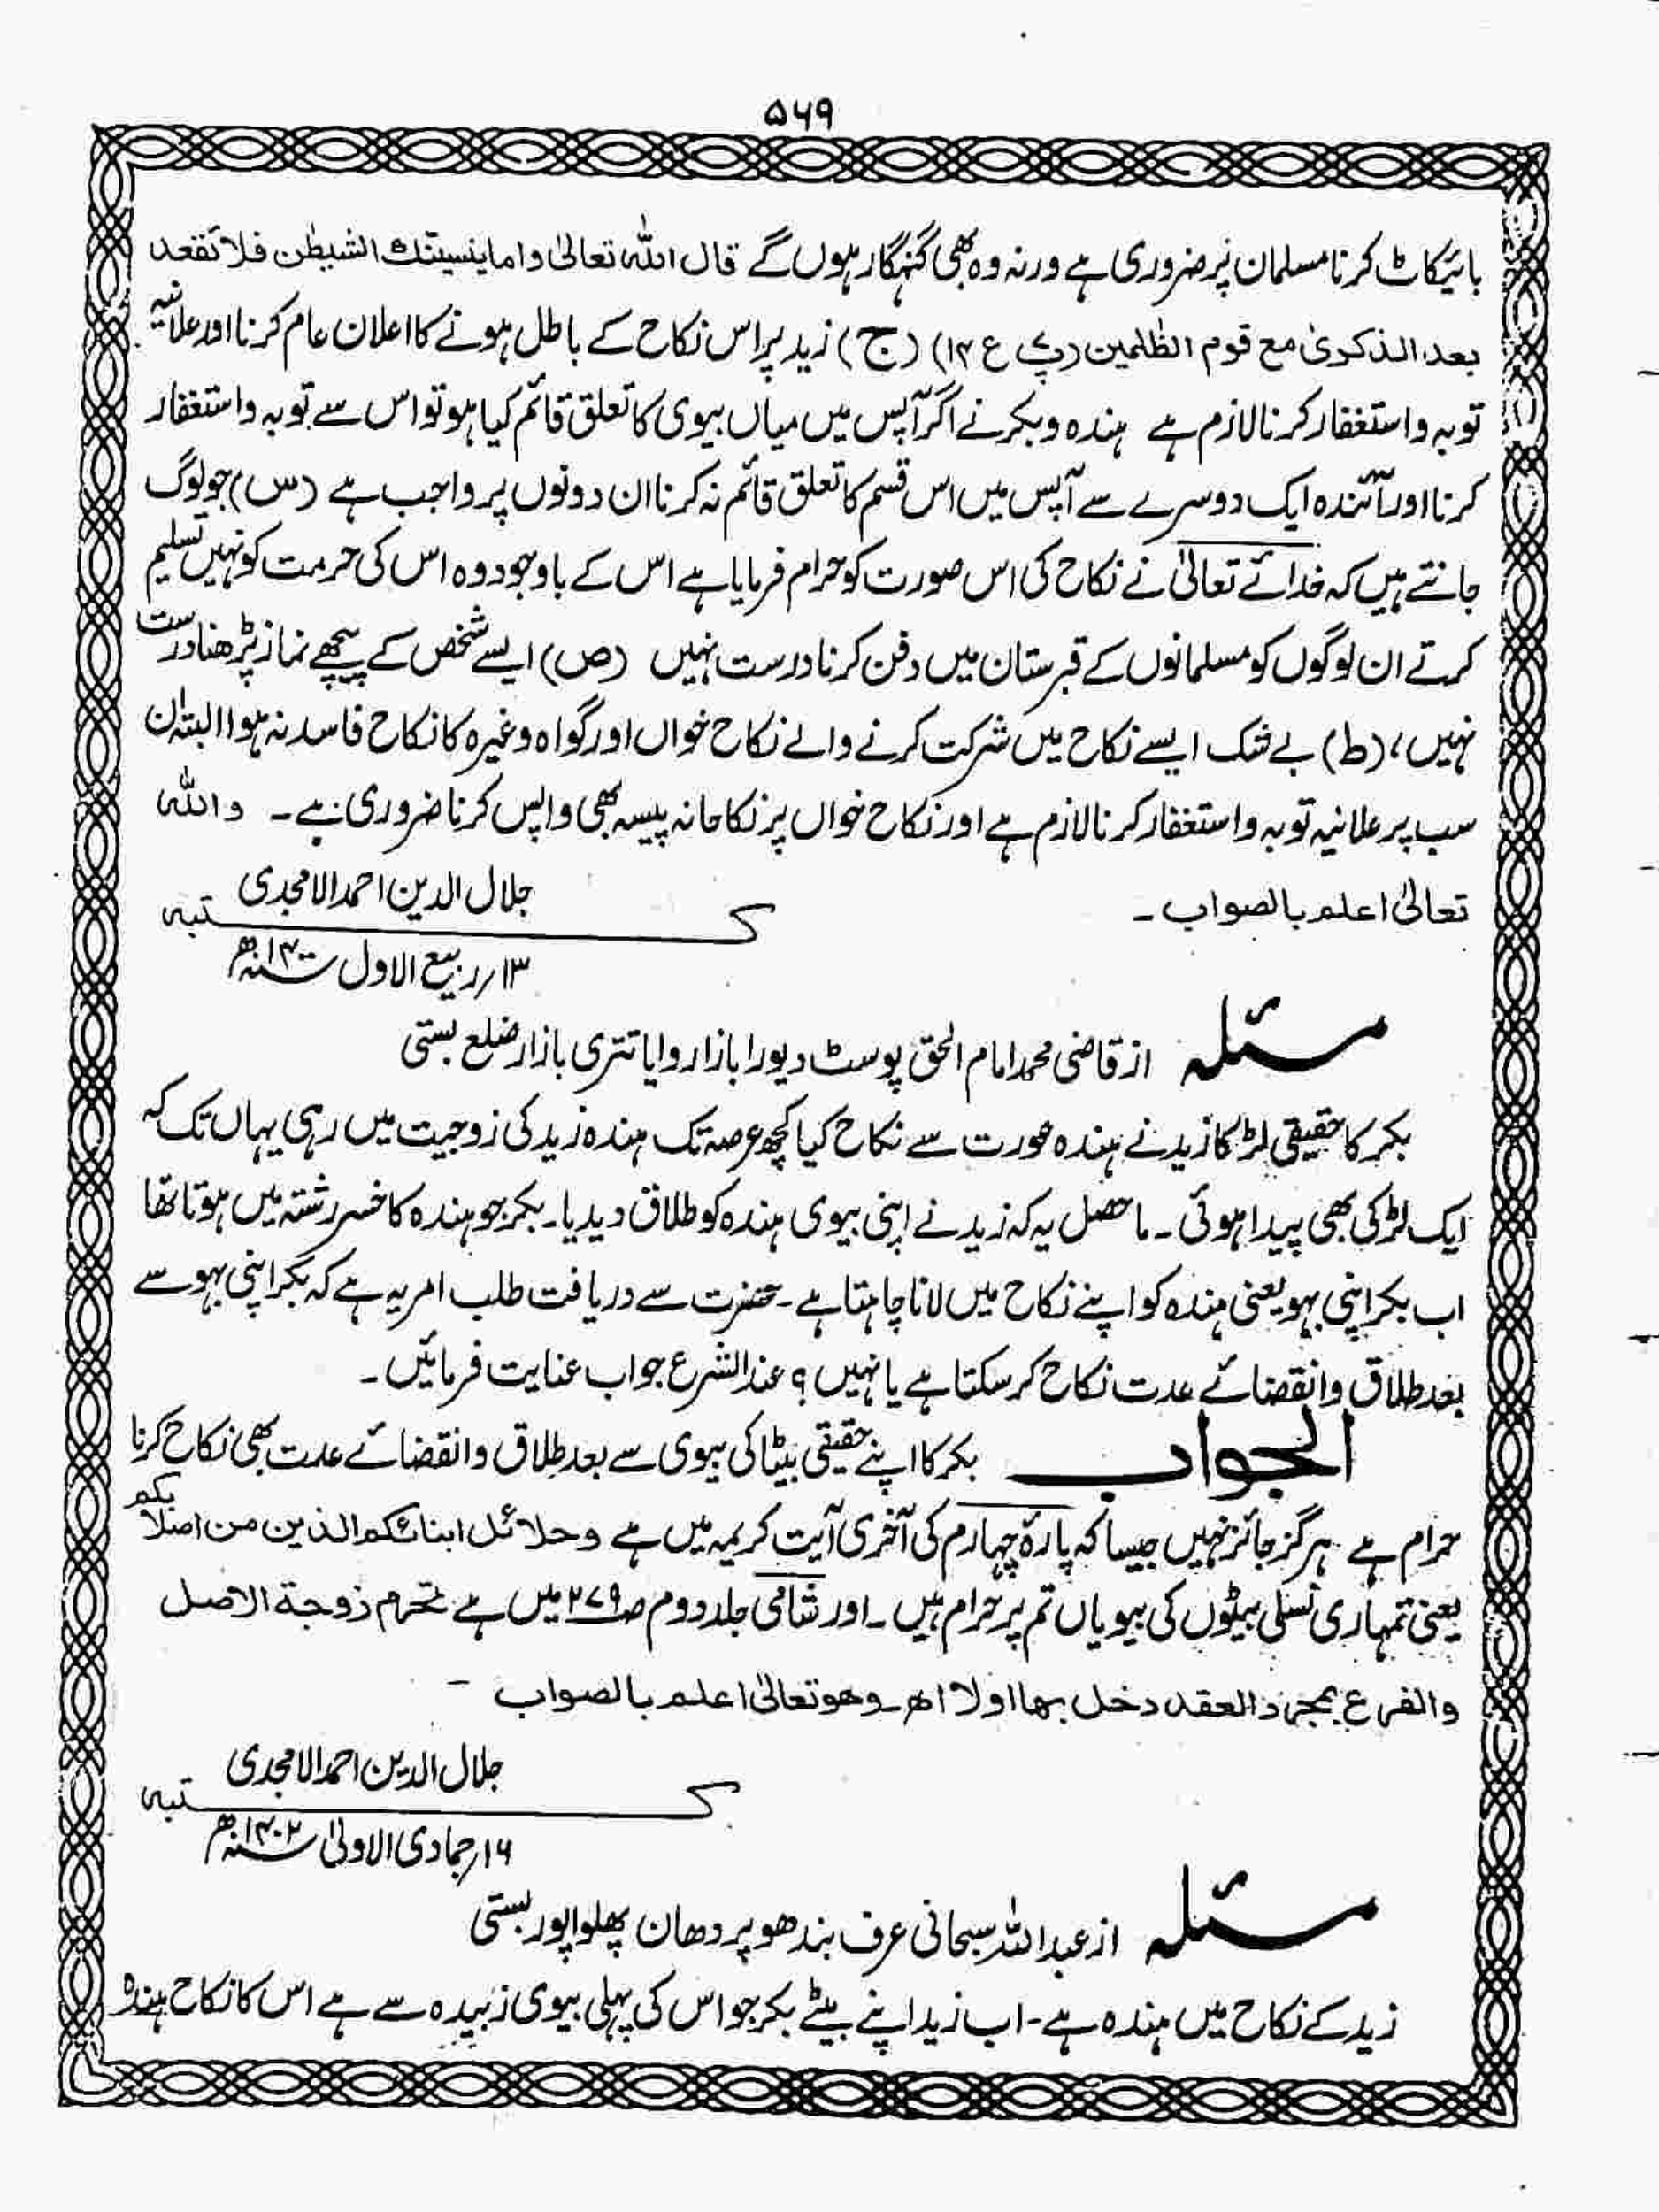 ۵۶۹
بائیکاٹ کرنا مسلمان پر ضروری ہے ورنہ وہ بھی گنہگار ہوں گے قال اللہ تعالیٰ واما ینسینک الشیطٰن فلا تقعد
بعد الذکریٰ مع قوم الظٰلمین (پ ع ۱۴) (ج) زید پر اس نکاح کے باطل ہونے کا اعلان عام کرنا اور علانیہ
توبہ و استغفار کرنا لازم ہے ہندہ و بکر نے اگر آپس میں میاں بیوی کا تعلق قائم کیا ہو تو اس سے توبہ و استغفار
کرنا اور آئندہ ایک دوسرے سے آپس میں اس قسم کا تعلق قائم نہ کرنا ان دونوں پر واجب ہے (س) جو لوگ
جانتے ہیں کہ خدائے تعالیٰ نے نکاح کی اس صورت کو حرام فرمایا ہے اس کے باوجود وہ اس کی حرمت کو نہیں تسلیم
کرتے ان لوگوں کو مسلمانوں کے قبرستان میں دفن کرنا درست نہیں (ص) ایسے شخص کے پیچھے نماز پڑھنا درست
نہیں، (ط) بے شک ایسے نکاح میں شرکت کرنے والے نکاح خواں اور گواہ وغیرہ کا نکاح فاسد نہ ہوا البتہ ان
سب پر علانیہ توبہ و استغفار کرنا لازم ہے اور نکاح خواں پر نکاحانہ پیسہ بھی واپس کرنا ضروری ہے۔ واللہ
تعالیٰ اعلم بالصواب۔
جلال الدین احمد الامجدی
کتبہ
۱۳؍ ربیع الاول سنہ ۱۴۰۰ھ
مسئلہ از قاضی محمد امام الحق پوسٹ دیورا بازار وایا تتری بازار ضلع بستی
بکر کا حقیقی لڑکا زید نے ہندہ عورت سے نکاح کیا کچھ عرصہ تک ہندہ زید کی زوجیت میں رہی یہاں تک کہ
ایک لڑکی بھی پیدا ہوئی۔ ماحصل یہ کہ زید نے اپنی بیوی ہندہ کو طلاق دیدیا۔ بکر جو ہندہ کا خسر رشتہ میں ہوتا تھا
اب بکر اپنی بہو یعنی ہندہ کو اپنے نکاح میں لانا چاہتا ہے۔ حضرت سے دریافت طلب امر یہ ہے کہ بکر اپنی بہو سے
بعد طلاق و انقضائے عدت نکاح کر سکتا ہے یا نہیں؟ عند الشرع جواب عنایت فرمائیں۔
الجواب بکر کا اپنے حقیقی بیٹا کی بیوی سے بعد طلاق و انقضائے عدت بھی نکاح کرنا
حرام ہے ہرگز جائز نہیں جیسا کہ پارۂ چہارم کی آخری آیت کریمہ میں ہے وحلائل ابنائکم الذین من اصلابکم
یعنی تمہاری نسلی بیٹوں کی بیویاں تم پر حرام ہیں۔ اور شامی جلد دوم ص ۲۷۹ میں ہے تحرم زوجة الاصل
والفرع بمجرد العقد دخل بہا اولا اھ۔ وھو تعالیٰ اعلم بالصواب
جلال الدین احمد الامجدی
کتبہ
۱۶؍ جمادی الاولیٰ سنہ ۱۴۰۲ھ
مسئلہ از عبد اللہ سبحانی عرف بندھو پردھان پھلواپور بستی
زید کے نکاح میں ہندہ ہے۔ اب زید اپنے بیٹے بکر جو اس کی پہلی بیوی زبیدہ سے ہے اس کا نکاح ہندہ